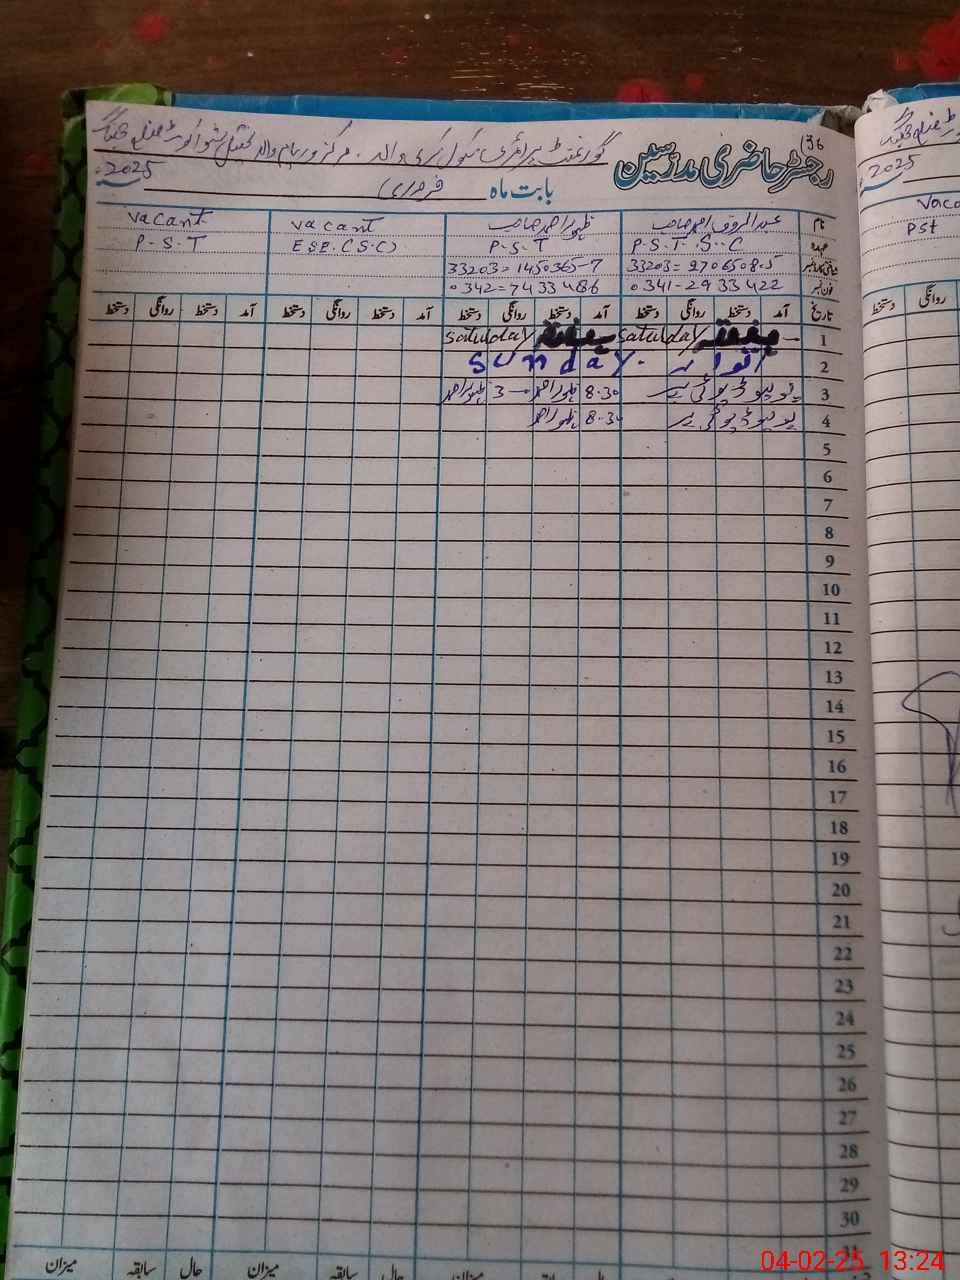 196
رجسٹر حاضری مدرسین
گورنمنٹ پرائمری سکول
بابت ماہ فروری 2025
نام عبدالرؤف احمد صاحب ظہور احمد صاحب vacant vacant
عہدہ P.S.T. S.C P.S.T ESE.(S.C) P.S.T
شناختی کارڈ نمبر 33203=2706508.5 33203=1450365-7
فون نمبر 0341-2933422 0342=7433486
تاریخ آمد دستخط روانگی دستخط آمد دستخط روانگی دستخط آمد دستخط روانگی دستخط آمد دستخط روانگی دستخط
1 ہفتہ Saturday ہفتہ Saturday
2 اتوار ہے Sunday.
3 8.30 ظہور احمد 3 ظہور احمد
4 8.30 ظہور احمد
5
6
7
8
9
10
11
12
13
14
15
16
17
18
19
20
21
22
23
24
25
26
27
28
29
30
31
حال سابقہ میزان حال سابقہ میزان حال سابقہ میزان
2025
Pst
روانگی دستخط
04-02-25 13:24